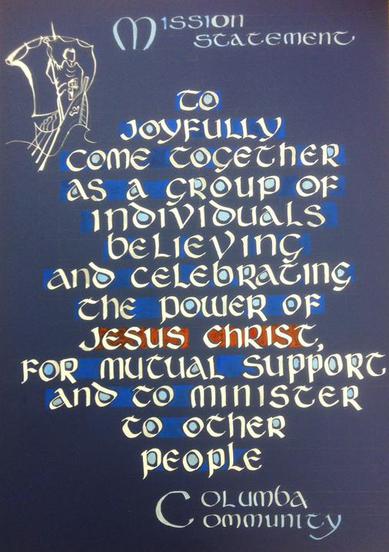 Mission
Statement
To
joyfully
come together
as a group of
individuals
believing
and celebrating
the power of
Jesus Christ,
for mutual support
and to minister
to other
people
Columba
Community